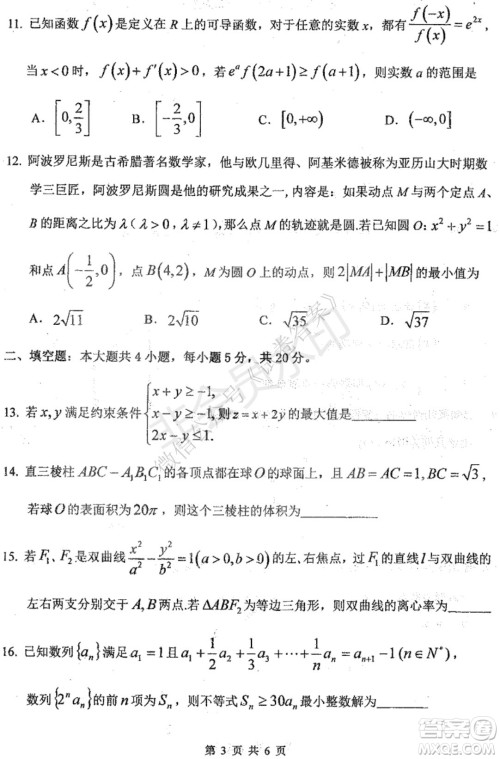 11. 已知函数 f(x) 是定义在 R 上的可导函数，对于任意的实数 x，都有 f(-x)/f(x) = e^{2x}，
当 x<0 时，f(x)+f'(x)>0，若 e^a f(2a+1) ≥ f(a+1)，则实数 a 的范围是
A. [0, 2/3] B. [-2/3, 0] C. [0,+∞) D. (-∞,0]
12. 阿波罗尼斯是古希腊著名数学家，他与欧几里得、阿基米德被称为亚历山大时期数
学三巨匠，阿波罗尼斯圆是他的研究成果之一，内容是：如果动点 M 与两个定点 A、
B 的距离之比为 λ(λ>0, λ≠1)，那么点 M 的轨迹就是圆.若已知圆 O: x²+y²=1
和点 A(-1/2, 0)，点 B(4,2)，M 为圆 O 上的动点，则 2|MA|+|MB| 的最小值为
A. 2√11 B. 2√10 C. √35 D. √37
二、填空题：本大题共 4 小题，每小题 5 分，共 20 分。
13. 若 x, y 满足约束条件 { x+y ≥ -1, x-y ≥ -1, 2x-y ≤ 1. 则 z=x+2y 的最大值是
14. 直三棱柱 ABC-A₁B₁C₁ 的各顶点都在球 O 的球面上，且 AB=AC=1, BC=√3，
若球 O 的表面积为 20π，则这个三棱柱的体积为
15. 若 F₁、F₂ 是双曲线 x²/a² - y²/b² = 1(a>0,b>0) 的左、右焦点，过 F₁ 的直线 l 与双曲线的
左右两支分别交于 A, B 两点.若 ΔABF₂ 为等边三角形，则双曲线的离心率为
16. 已知数列 {aₙ} 满足 a₁=1 且 a₁ + 1/2 a₂ + 1/3 a₃ + ⋯ + 1/n aₙ = aₙ₊₁ - 1 (n∈N*)，
数列 {2ⁿaₙ} 的前 n 项为 Sₙ，则不等式 Sₙ ≥ 30aₙ 最小整数解为
第 3 页 共 6 页
答案圈